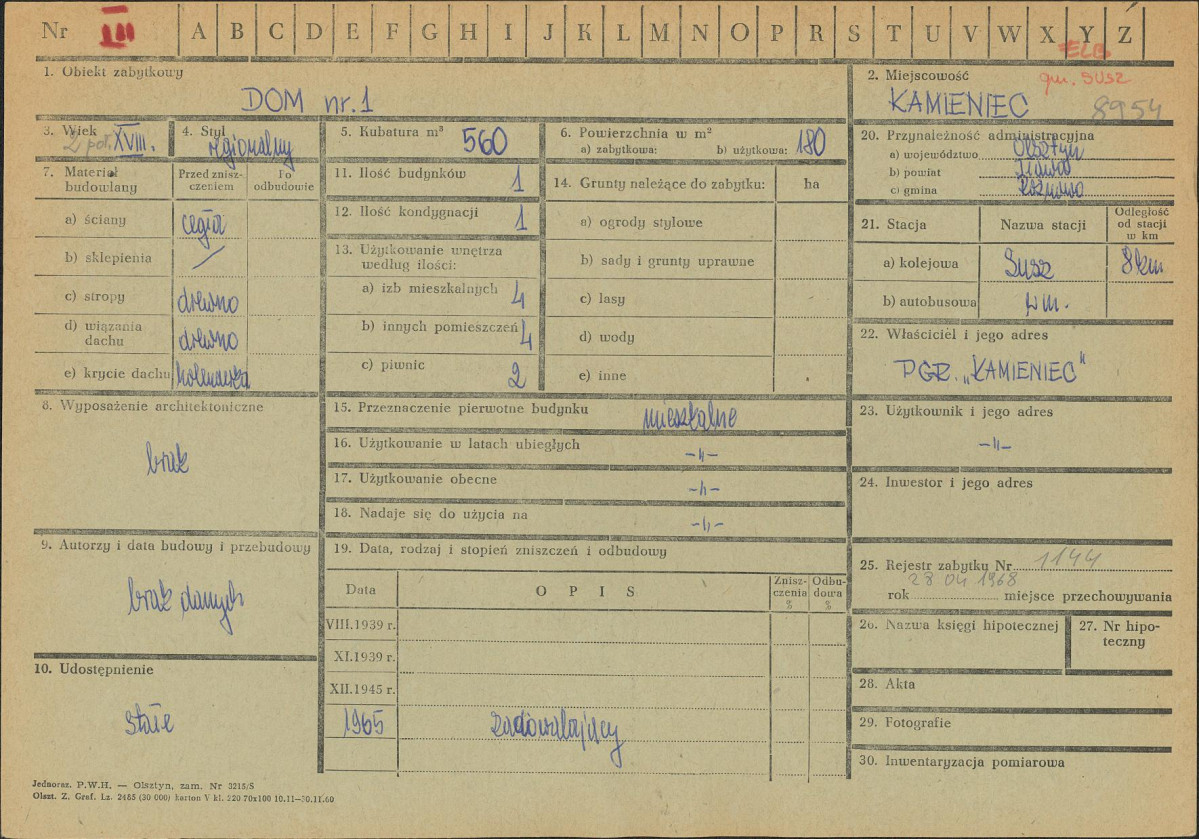 Nr III A B C D E F G H I J K L M N O P R S T U V W X Y Z Ź
ELB
gm. SUSZ
1. Obiekt zabytkowy
DOM nr. 1
2. Miejscowość
KAMIENIEC 8954
3. Wiek
2 poł. XVIII.
4. Styl
regionalny
5. Kubatura m³ 560
6. Powierzchnia w m²
a) zabytkowa: b) użytkowa: 180
7. Materiał budowlany
Przed zniszczeniem
Po odbudowie
a) ściany cegła
b) sklepienia /
c) stropy drewno
d) wiązania dachu drewno
e) krycie dachu holenderka
8. Wyposażenie architektoniczne
brak
9. Autorzy i data budowy i przebudowy
brak danych
10. Udostępnienie
stałe
11. Ilość budynków 1
12. Ilość kondygnacji 1
13. Użytkowanie wnętrza według ilości:
a) izb mieszkalnych 4
b) innych pomieszczeń 4
c) piwnic 2
14. Grunty należące do zabytku: ha
a) ogrody stylowe
b) sady i grunty uprawne
c) lasy
d) wody
e) inne
15. Przeznaczenie pierwotne budynku mieszkalne
16. Użytkowanie w latach ubiegłych -"-
17. Użytkowanie obecne -"-
18. Nadaje się do użycia na -"-
19. Data, rodzaj i stopień zniszczeń i odbudowy
Data OPIS Zniszczenia % Odbudowa %
VIII.1939 r.
XI.1939 r.
XII.1945 r.
1965 zadowalający
20. Przynależność administracyjna
a) województwo Olsztyn
b) powiat Iława
c) gmina
21. Stacja Nazwa stacji Odległość od stacji w km
a) kolejowa Susz 8 km
b) autobusowa w m.
22. Właściciel i jego adres
PGR. „KAMIENIEC"
23. Użytkownik i jego adres
-"-
24. Inwestor i jego adres
25. Rejestr zabytku Nr 1144
28 04 1968
rok miejsce przechowywania
26. Nazwa księgi hipotecznej
27. Nr hipoteczny
28. Akta
29. Fotografie
30. Inwentaryzacja pomiarowa
Jednoraz. P.W.H. — Olsztyn, zam. Nr 3215/S
Olszt. Z. Graf. Lz. 2485 (30 000) karton V kl. 220 70x100 10.11—30.11.60